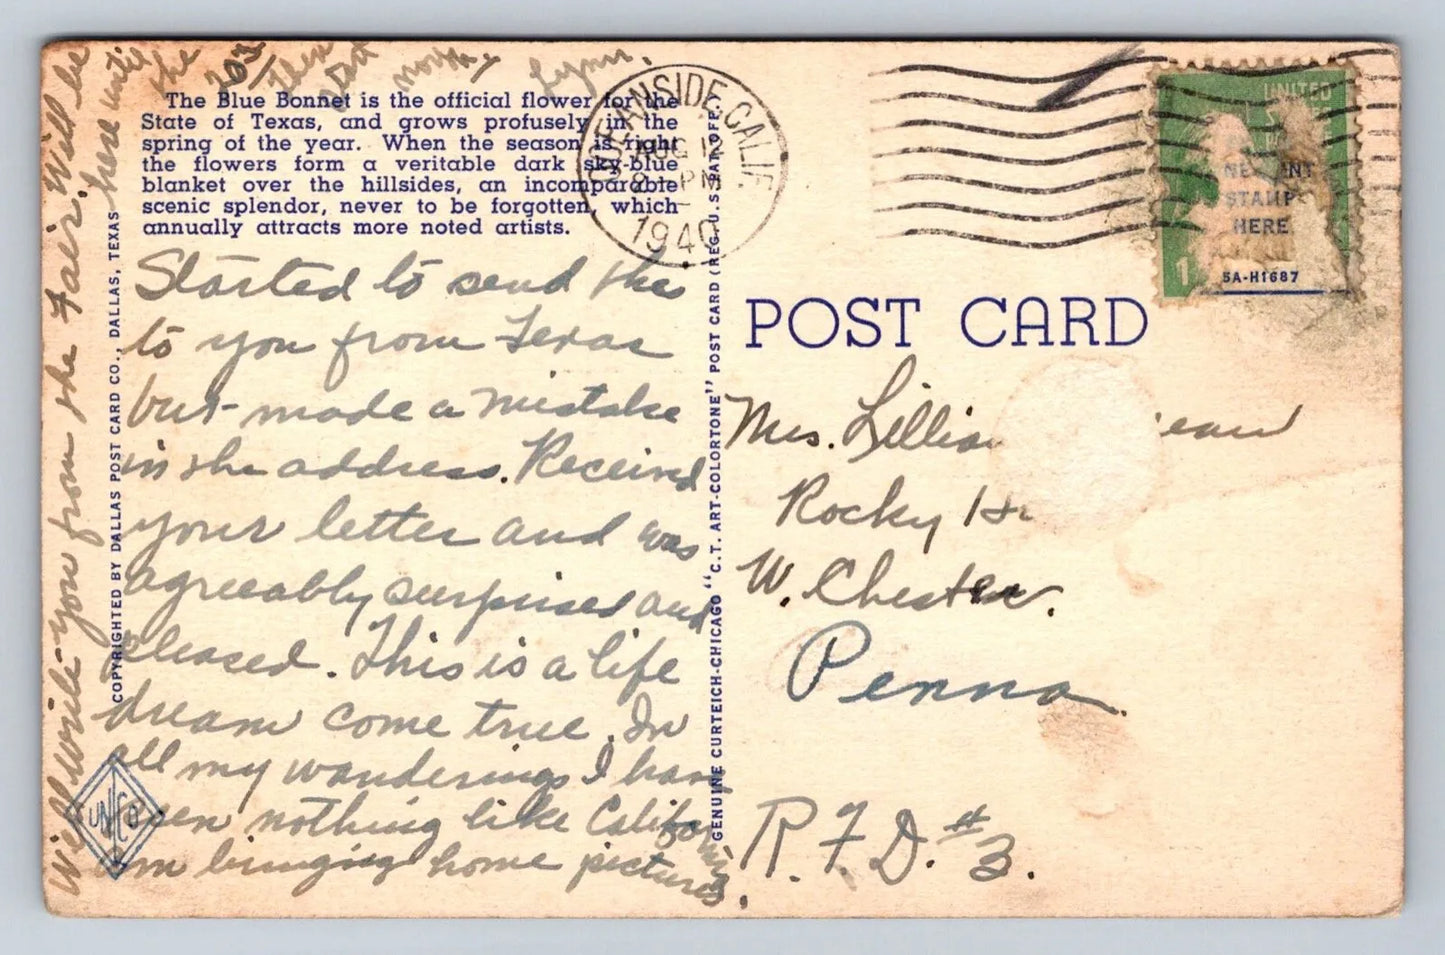 The Blue Bonnet is the official flower for the
State of Texas, and grows profusely in the
spring of the year. When the season is right
the flowers form a veritable dark sky-blue
blanket over the hillsides, an incomparable
scenic splendor, never to be forgotten, which
annually attracts more noted artists.
Started to send this
to you from Texas
but made a mistake
in the address. Received
your letter and was
agreeably surprised and
pleased. This is a life
dream come true. In
all my wanderings I have
seen nothing like California
am bringing home pictures.
Will write you from the Fair. Will be
here until
the
20th
then
north,
Lynn.
COPYRIGHTED BY DALLAS POST CARD CO., DALLAS, TEXAS
UNCO
GENUINE CURTEICH-CHICAGO "C.T. ART-COLORTONE" POST CARD (REG. U.S. PAT. OFF.)
OCEANSIDE, CALIF.
AUG 12
8 PM
1940
UNITED
1
STAMP
HERE
5A-H1687
POST CARD
Mrs.
Rocky
W. Chester.
Penna.
R.F.D. #3.